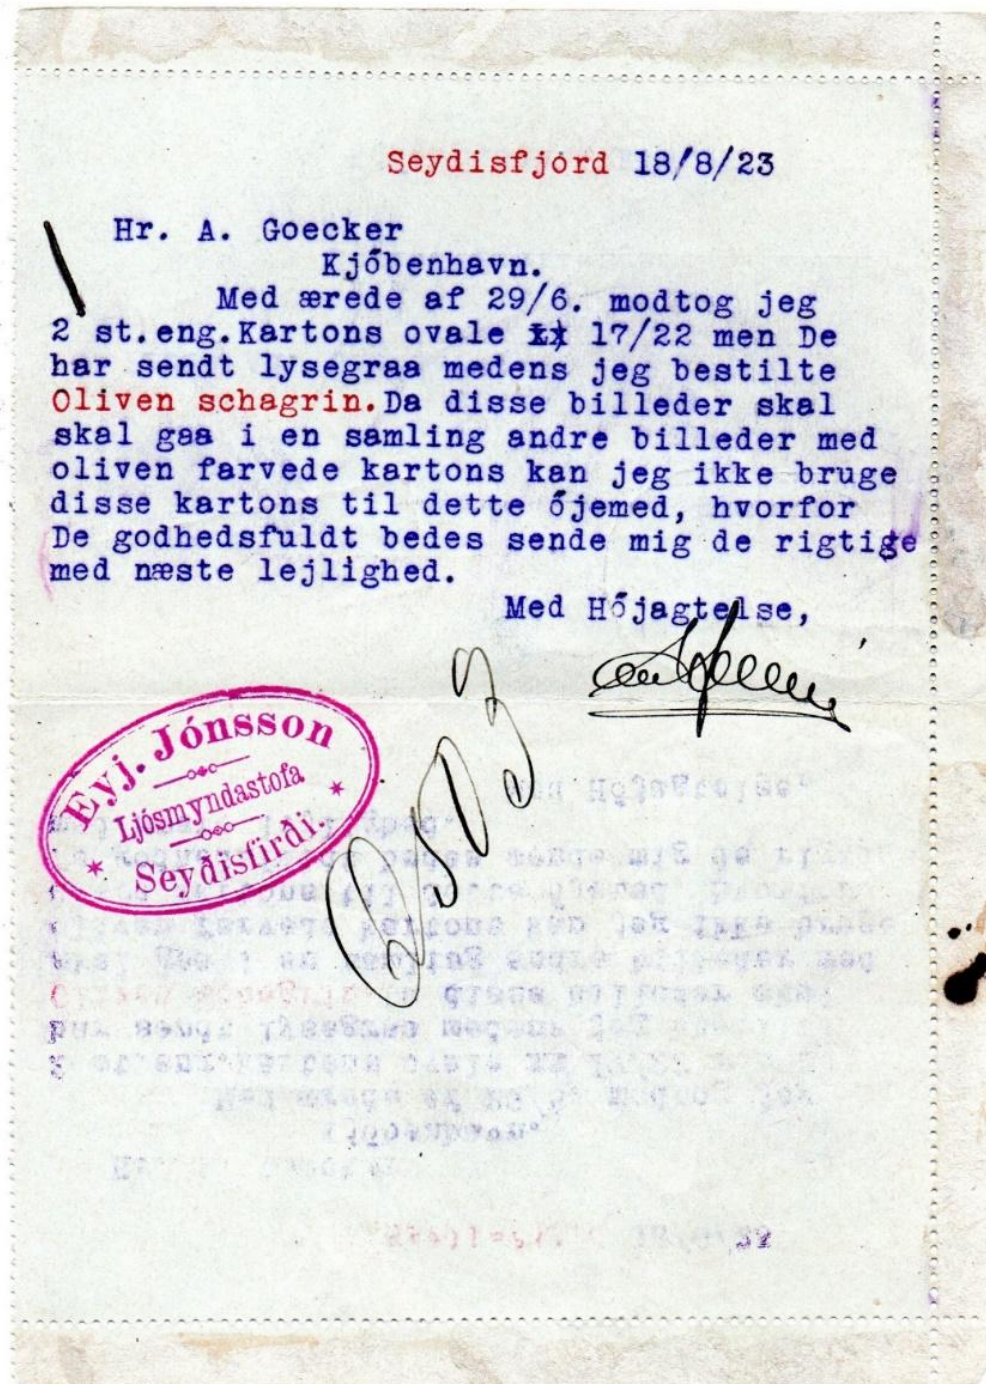 Seydisfjord 18/8/23
Hr. A. Goecker
Kjőbenhavn.
Med ærede af 29/6. modtog jeg
2 st.eng.Kartons ovale 17/22 men De
har sendt lysegraa medens jeg bestilte
Oliven schagrin.Da disse billeder skal
skal gaa i en samling andre billeder med
oliven farvede kartons kan jeg ikke bruge
disse kartons til dette őjemed, hvorfor
De godhedsfuldt bedes sende mig de rigtige
med næste lejlighed.
Med Hőjagtelse,
Eyj. Jónsson
Ljósmyndastofa
Seyðisfirði.